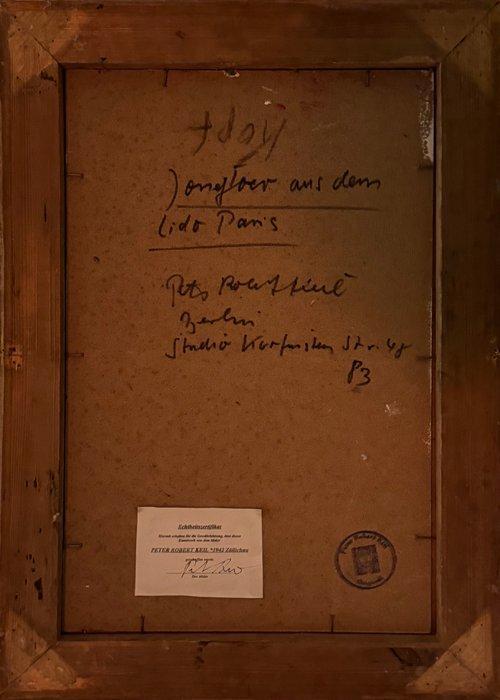 Kopf
Jongloer aus dem
Lido Paris
Peter Robert Keil
Berlin
Studio Kurfürsten Str. 48
83
Echtheitszertifikat
Hiermit erhalten Sie die Gewährleistung, dass dieses
Kunstwerk von dem Maler
PETER ROBERT KEIL *1942 Züllichau
geschaffen wurde.
Der Maler
Peter Robert Keil